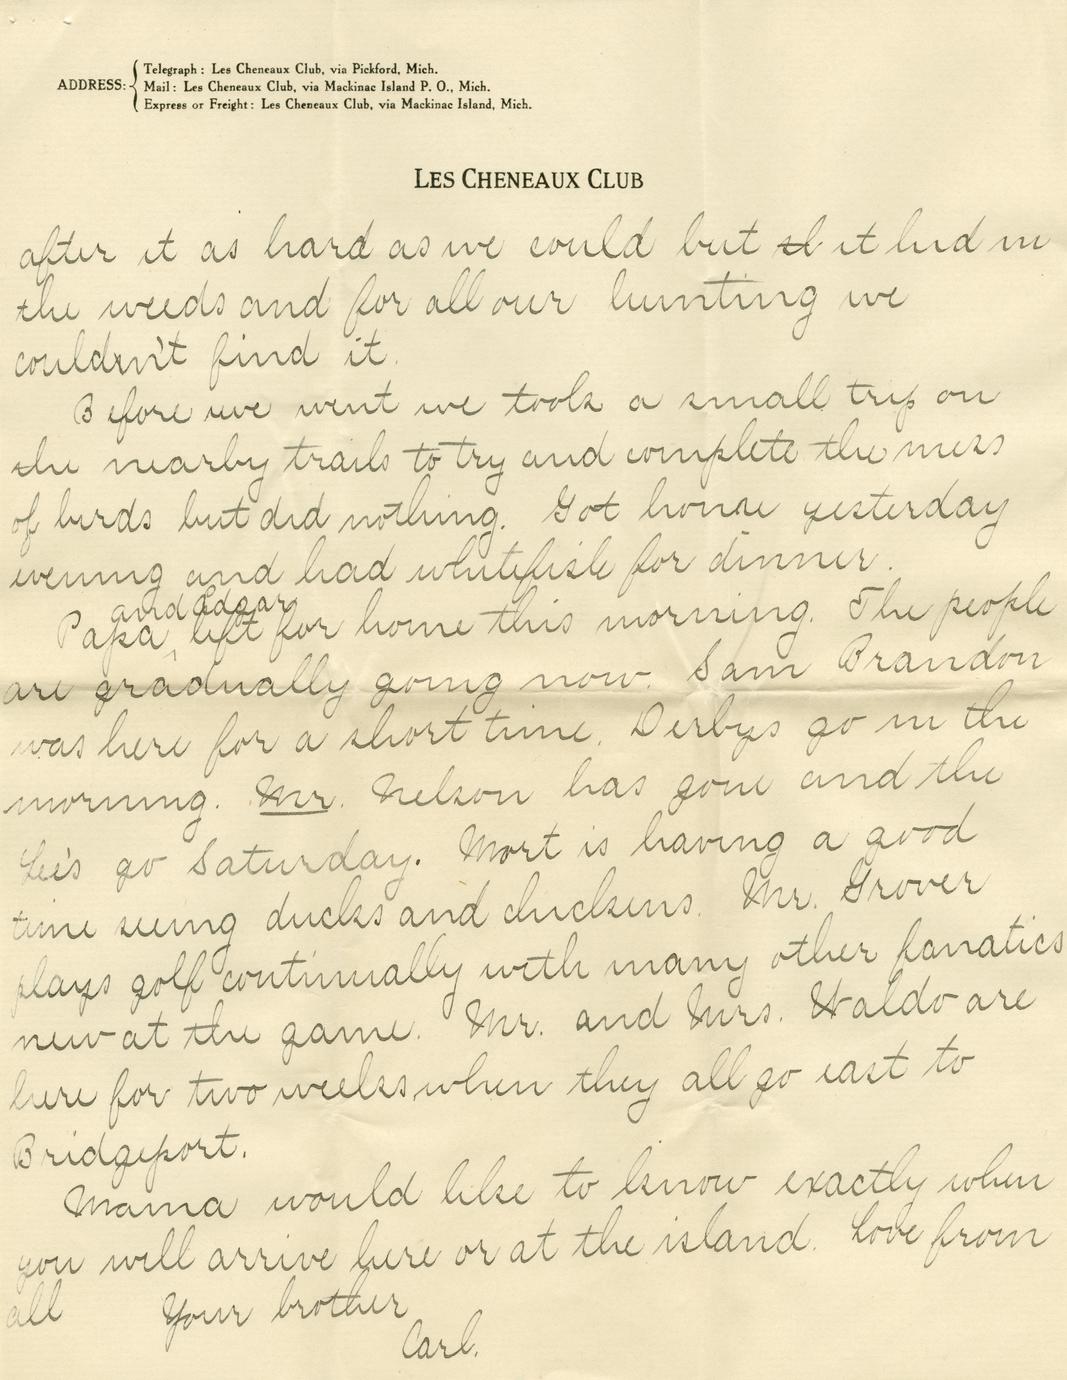 ADDRESS:
Telegraph: Les Cheneaux Club, via Pickford, Mich.
Mail: Les Cheneaux Club, via Mackinac Island P. O., Mich.
Express or Freight: Les Cheneaux Club, via Mackinac Island, Mich.
LES CHENEAUX CLUB
after it as hard as we could but it hid in
the weeds and for all our hunting we
couldn't find it.
Before we went we took a small trip on
the nearby trails to try and complete the mess
of birds but did nothing. Got home yesterday
evening and had whitefish for dinner.
and Edgar
Papa ‸ left for home this morning. The people
are gradually going now. Sam Brandon
was here for a short time. Derbys go in the
morning. Mr. Nelson has gone and the
Lee's go Saturday. Mort is having a good
time seeing ducks and chickens. Mr. Grover
plays golf continually with many other fanatics
new at the game. Mr. and Mrs. Waldo are
here for two weeks when they all go east to
Bridgeport.
Mama would like to know exactly when
you will arrive here or at the island. Love from
all Your brother
Carl.